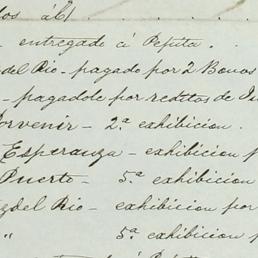 los á
- entregado á Pepita.
del Rio - pagado por 2 Bonos
- pagadole por reditos de
Porvenir - 2.ª exhibicion.
Esperanza - exhibicion p
Puerto - 5.ª exhibicion
del Rio - exhibicion por
" 5.ª exhibicion p